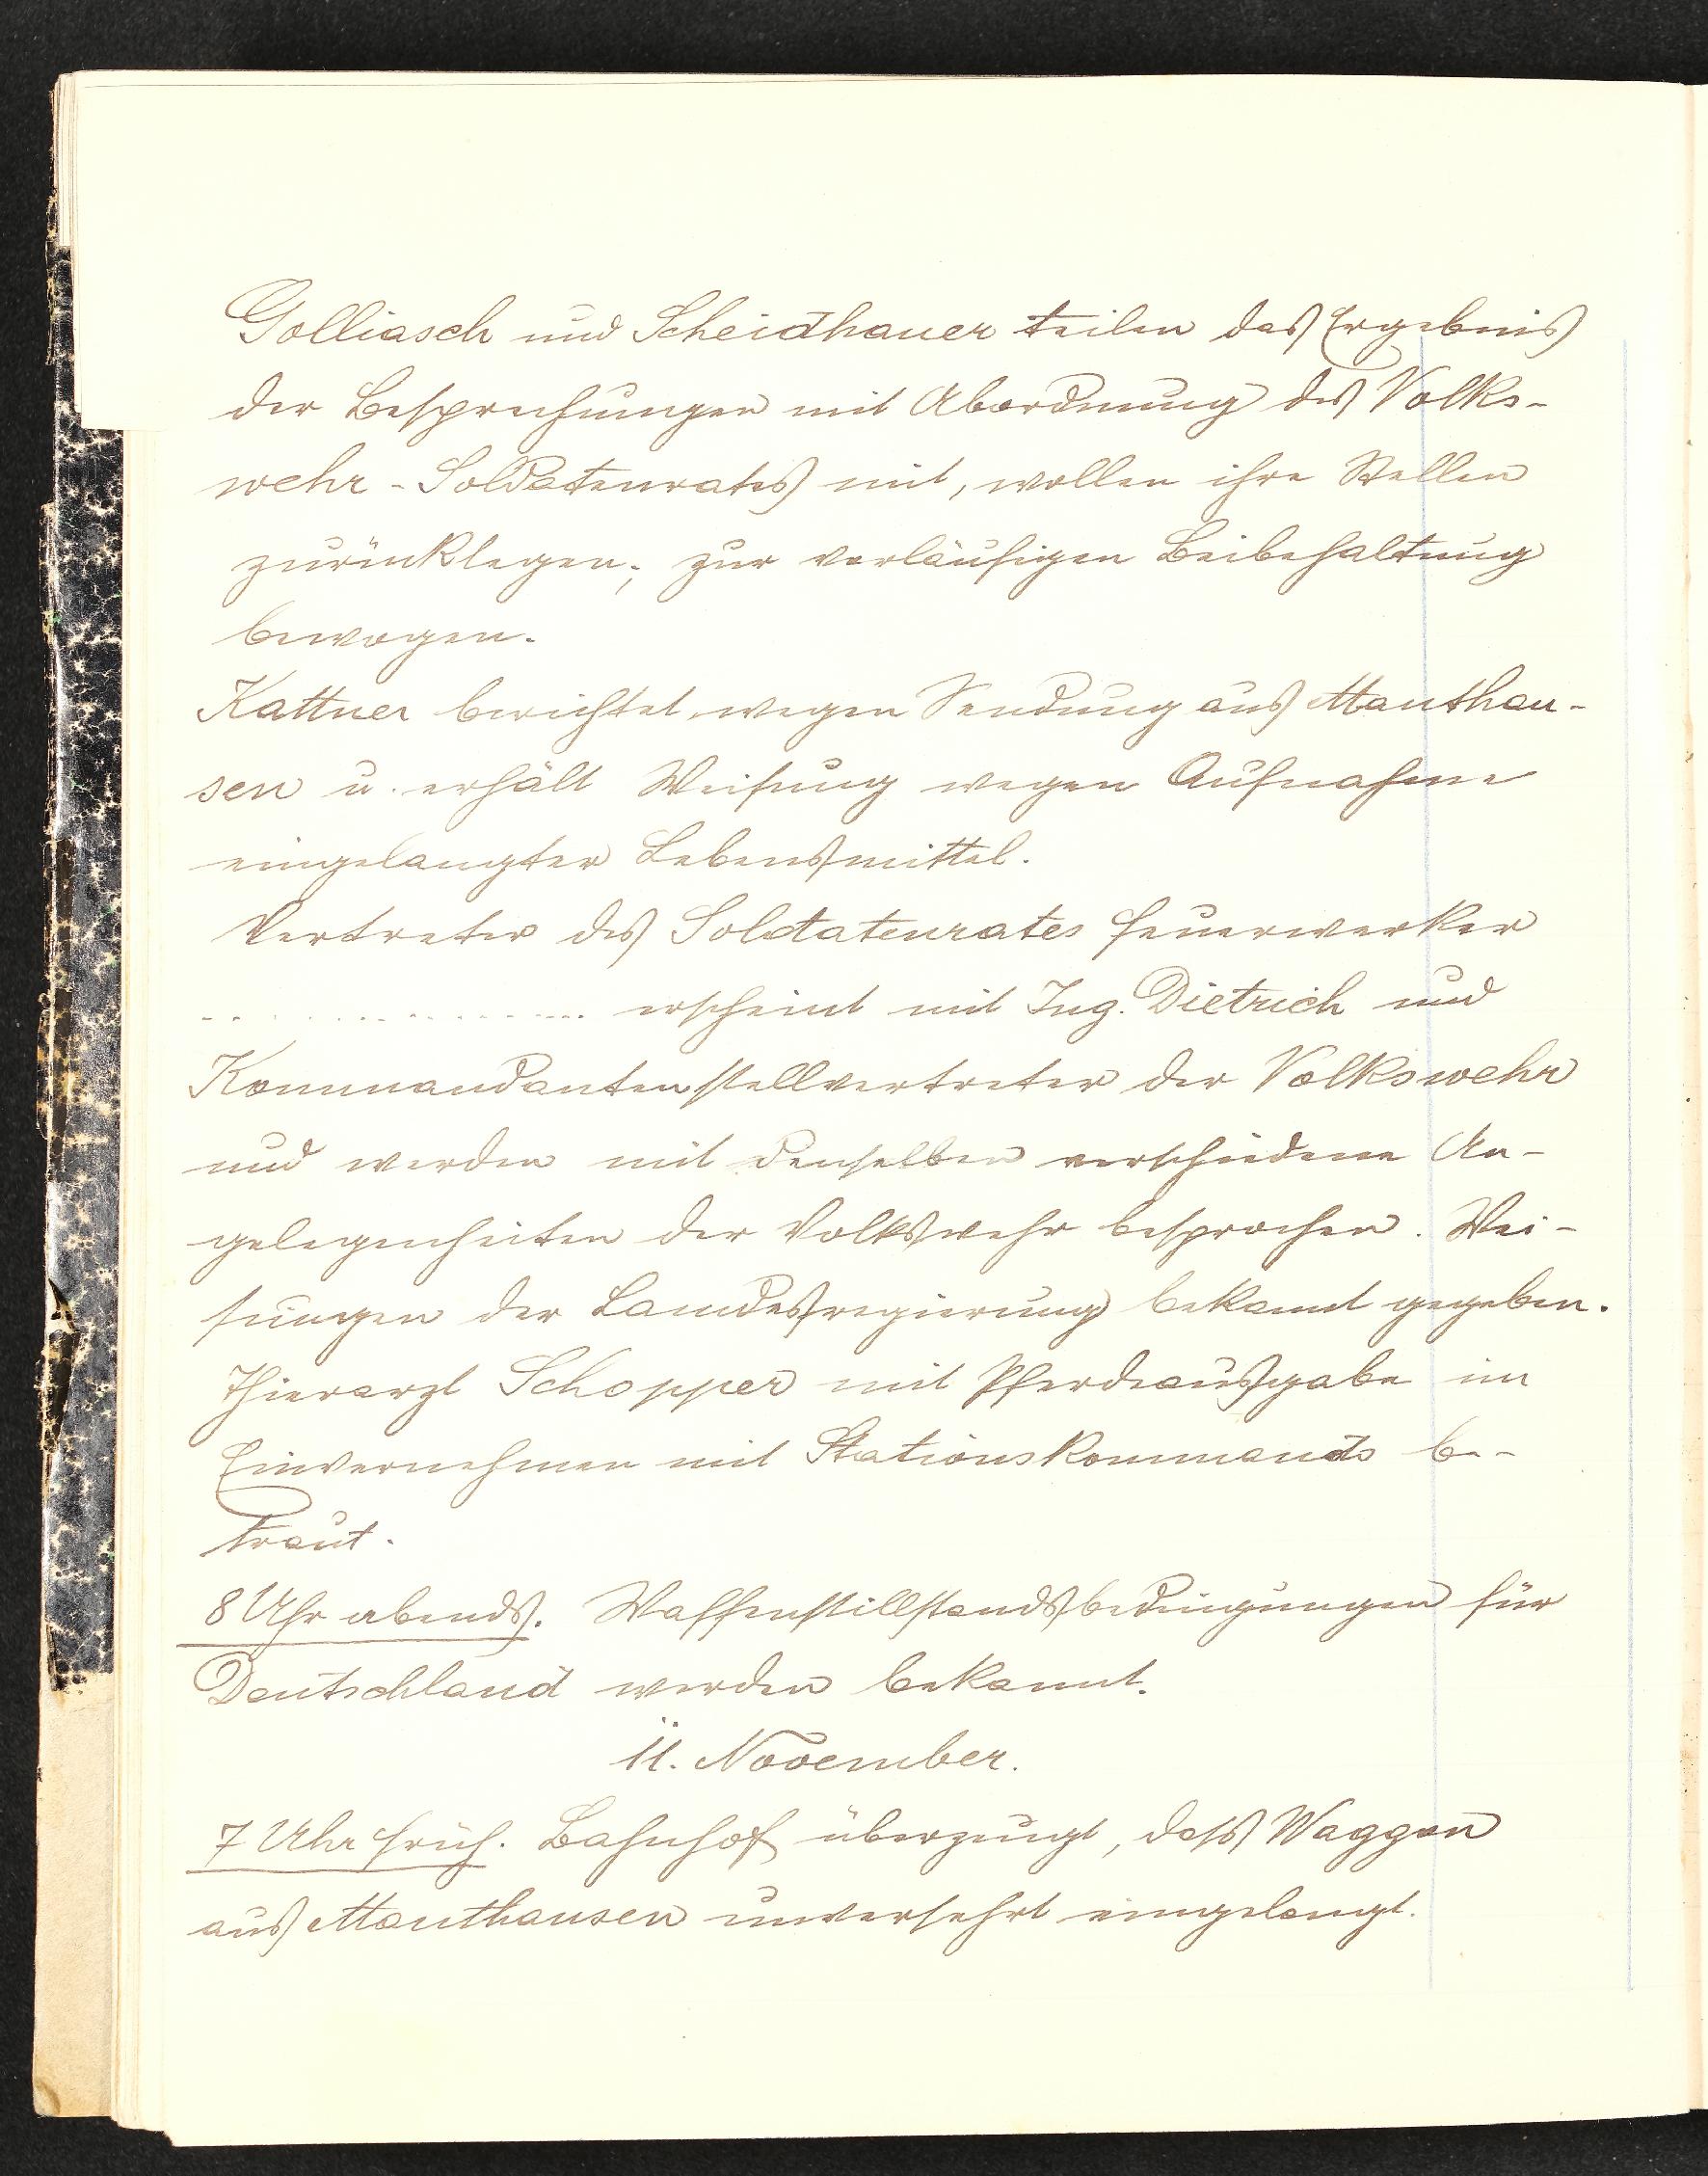 Golliasch und Scheidhauer teilen das Ergebnis
der Besprechungen mit Abordnung des Volks-
wehr-Soldatenrates mit, wollen ihre Stellen
zurücklegen; zur vorläufigen Beibehaltung
bewogen.
Kattner berichtet wegen Sendung aus Mauthau-
sen u. erhält Weisung wegen Aufnahme
eingelangter Lebensmittel.
Vertreter des Soldatenrates Feuerwerker
................... erscheint mit Ing. Dietrich und
Kommandantenstellvertreter der Volkswehr
und werden mit denselben verschiedene An-
gelegenheiten der Volkswehr besprochen. Wei-
sungen der Landesregierung bekannt gegeben.
Thierarzt Schopper mit Pferdeausgabe im
Einvernehmen mit Stationskommando be-
traut.
8 Uhr abends. Waffenstillstandsbedingungen für
Deutschland werden bekannt.
11. November.
7 Uhr früh. Bahnhof überzeugt, dass Waggon
aus Mauthausen unversehrt eingelangt.